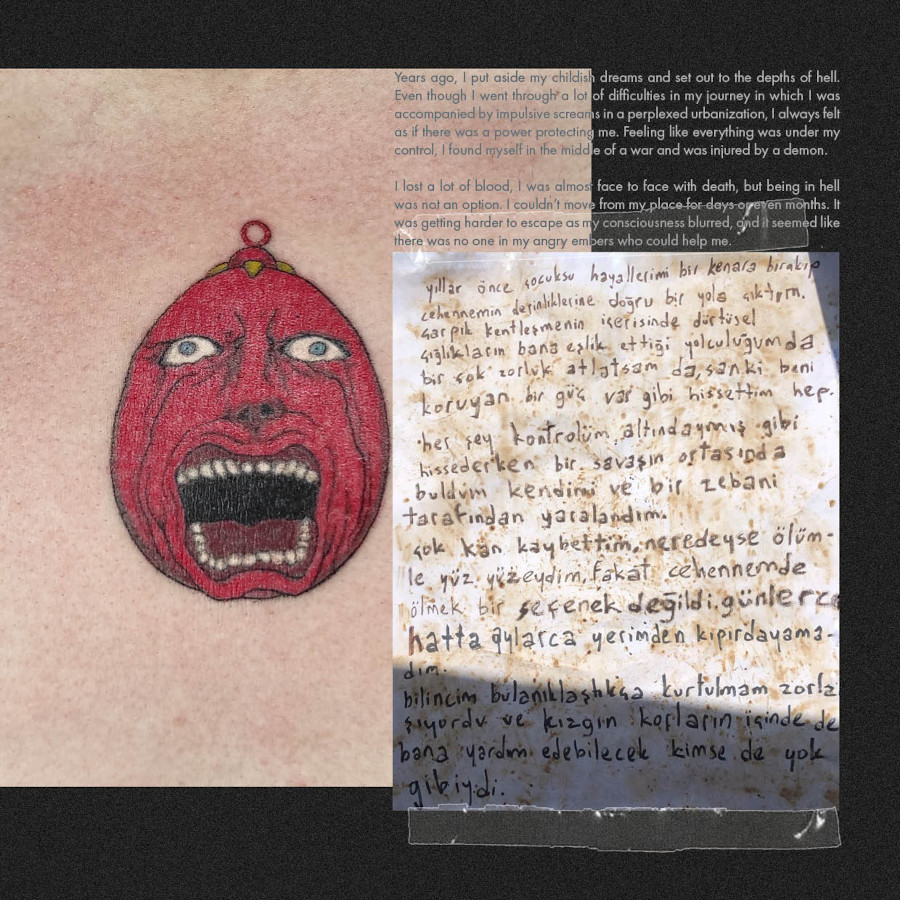 Years ago, I put aside my childish dreams and set out to the depths of hell.
Even though I went through a lot of difficulties in my journey in which I was
accompanied by impulsive screams in a perplexed urbanization, I always felt
as if there was a power protecting me. Feeling like everything was under my
control, I found myself in the middle of a war and was injured by a demon.
I lost a lot of blood, I was almost face to face with death, but being in hell
was not an option. I couldn't move from my place for days or even months. It
was getting harder to escape as my consciousness blurred, and it seemed like
there was no one in my angry embers who could help me.
yıllar önce çocuksu hayallerimi bir kenara bırakıp
cehennemin derinliklerine doğru bir yola çıktım.
çarpık kentleşmenin içerisinde dürtüsel
çığlıkların bana eşlik ettiği yolculuğumda
bir çok zorluk atlatsam da, sanki beni
koruyan bir güç var gibi hissettim hep.
her şey kontrolüm altındaymış gibi
hissederken bir savaşın ortasında
buldum kendimi ve bir zebani
tarafından yaralandım.
çok kan kaybettim, neredeyse ölüm-
le yüz yüzeydim, fakat cehennemde
ölmek bir seçenek değildi. günlerce
hatta aylarca yerimden kıpırdayama-
dım.
bilincim bulanıklaştıkça kurtulmam zorla
şıyordu ve kızgın korların içinde de
bana yardım edebilecek kimse de yok
gibiydi.